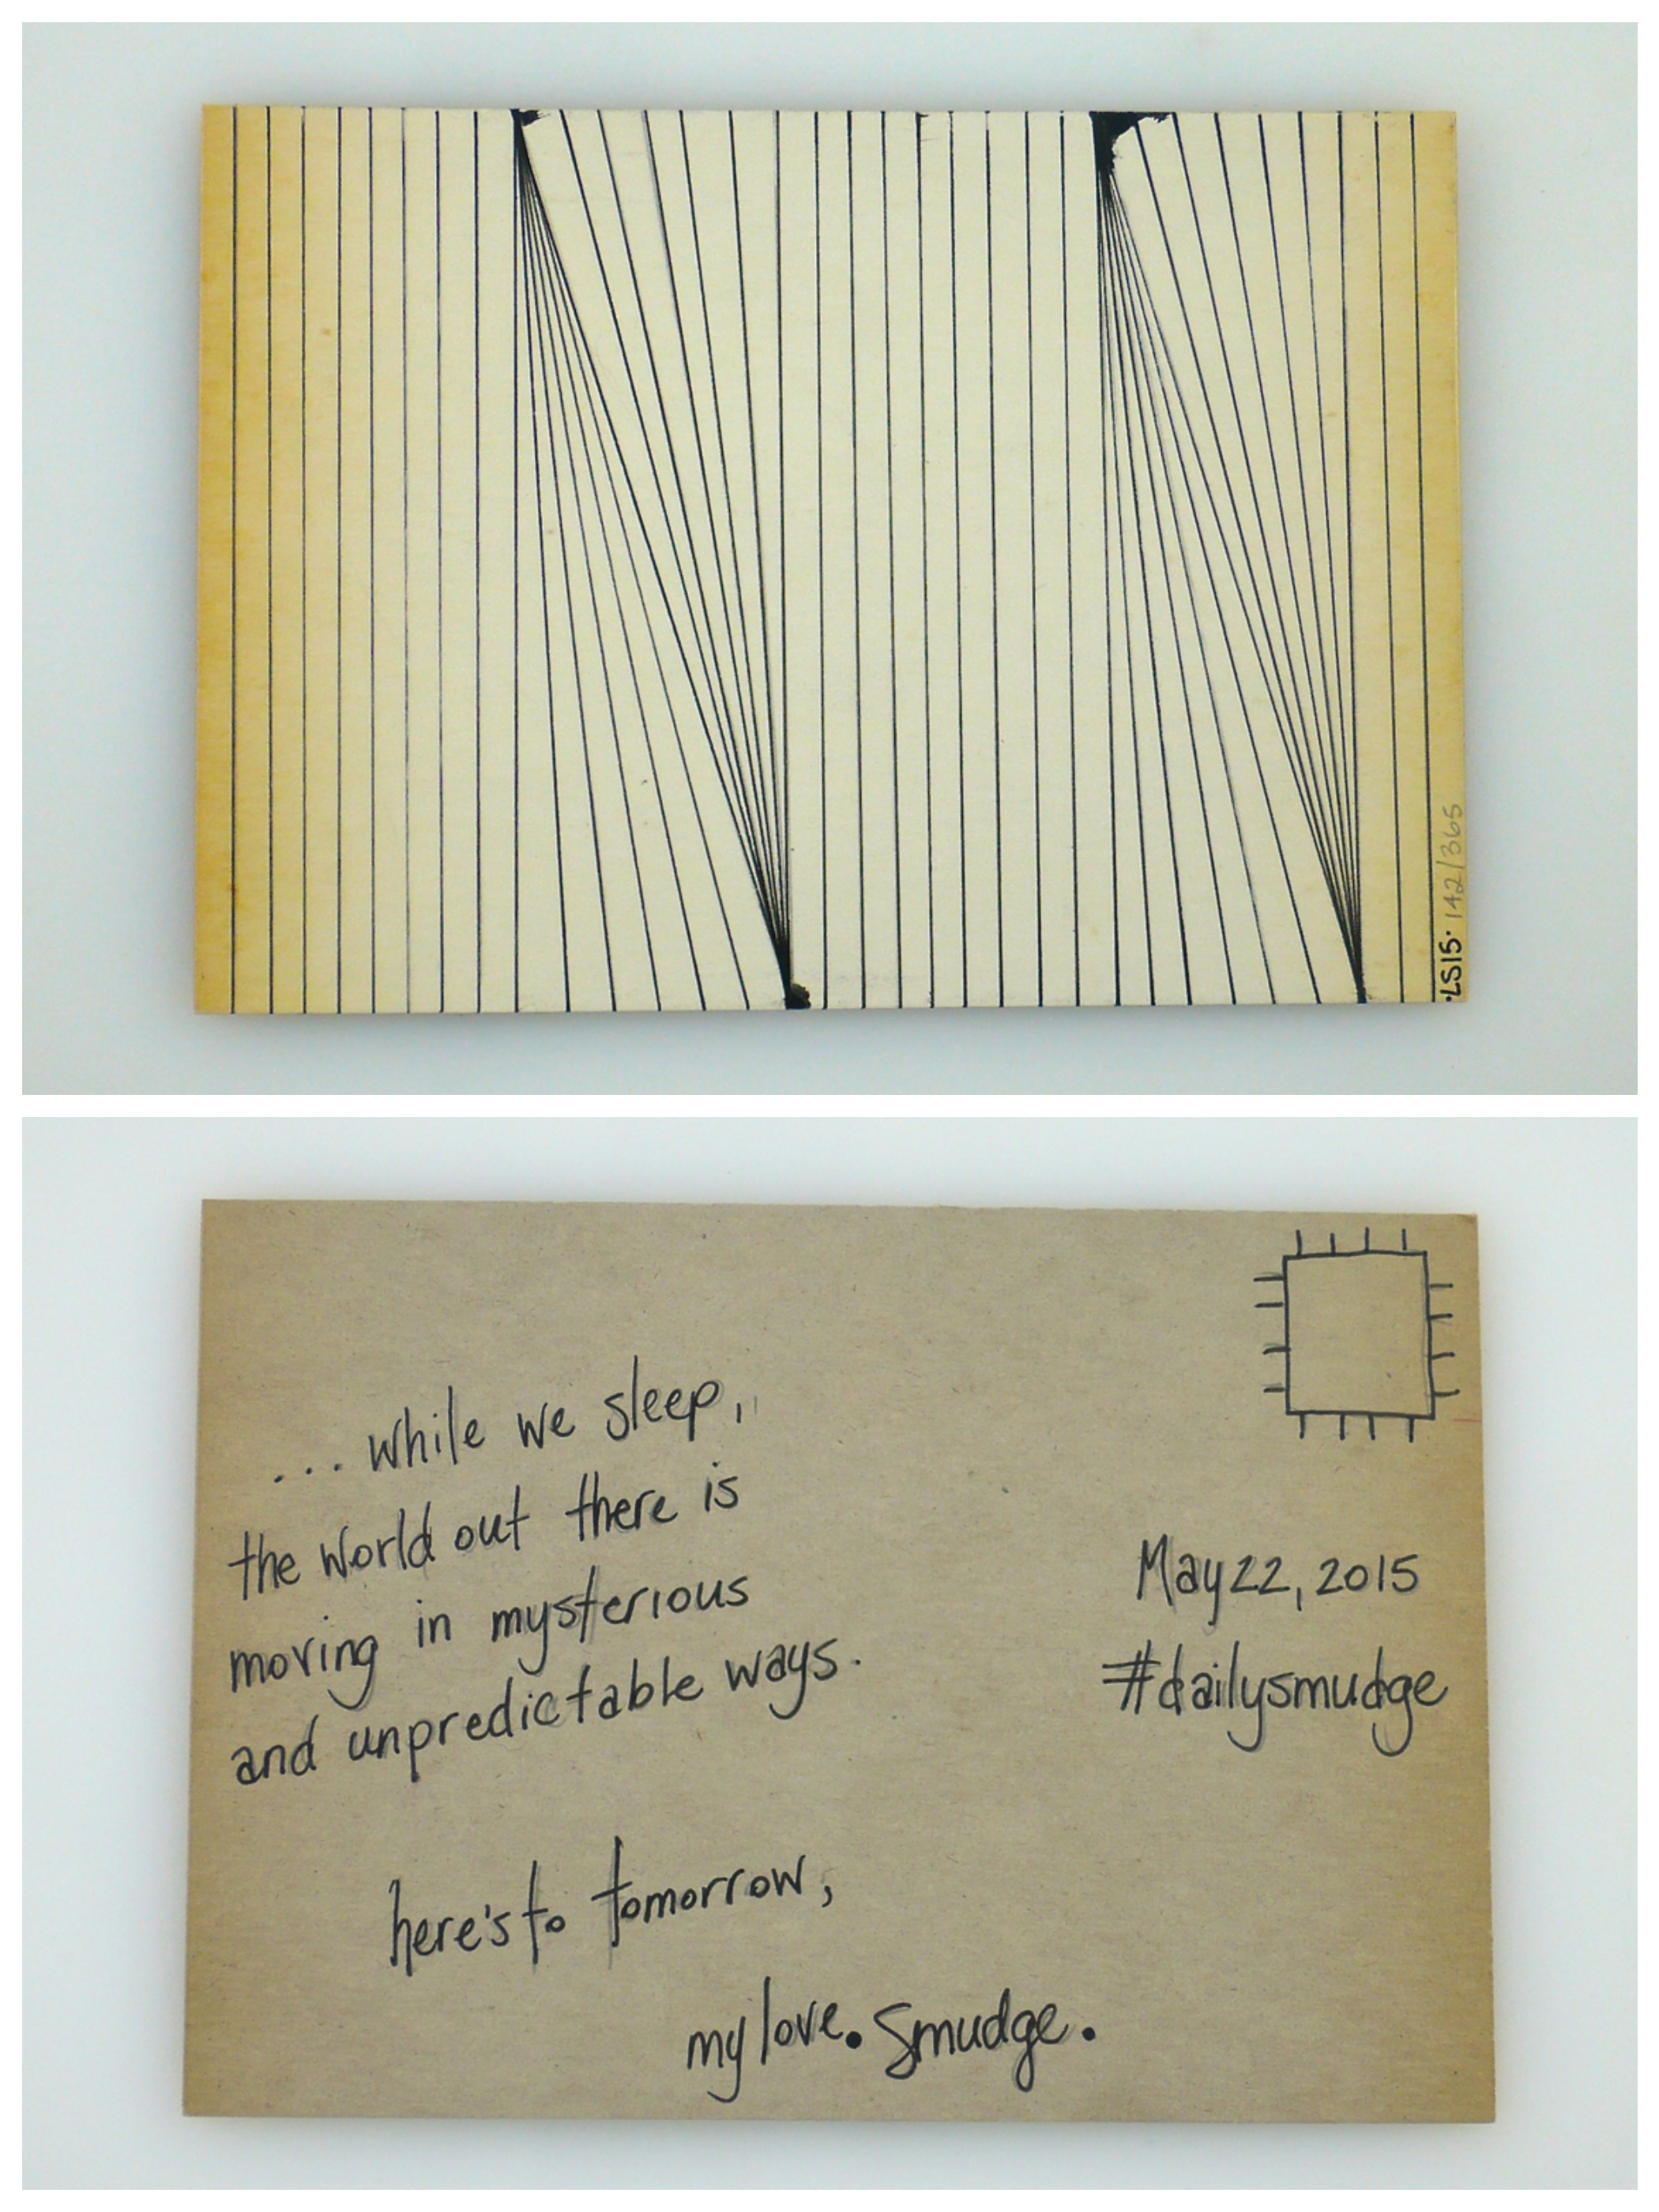 ·LS15· 142/365
...while we sleep,
the world out there is
moving in mysterious
and unpredictable ways.
here's to tomorrow,
my love. Smudge.
May 22, 2015
#dailysmudge